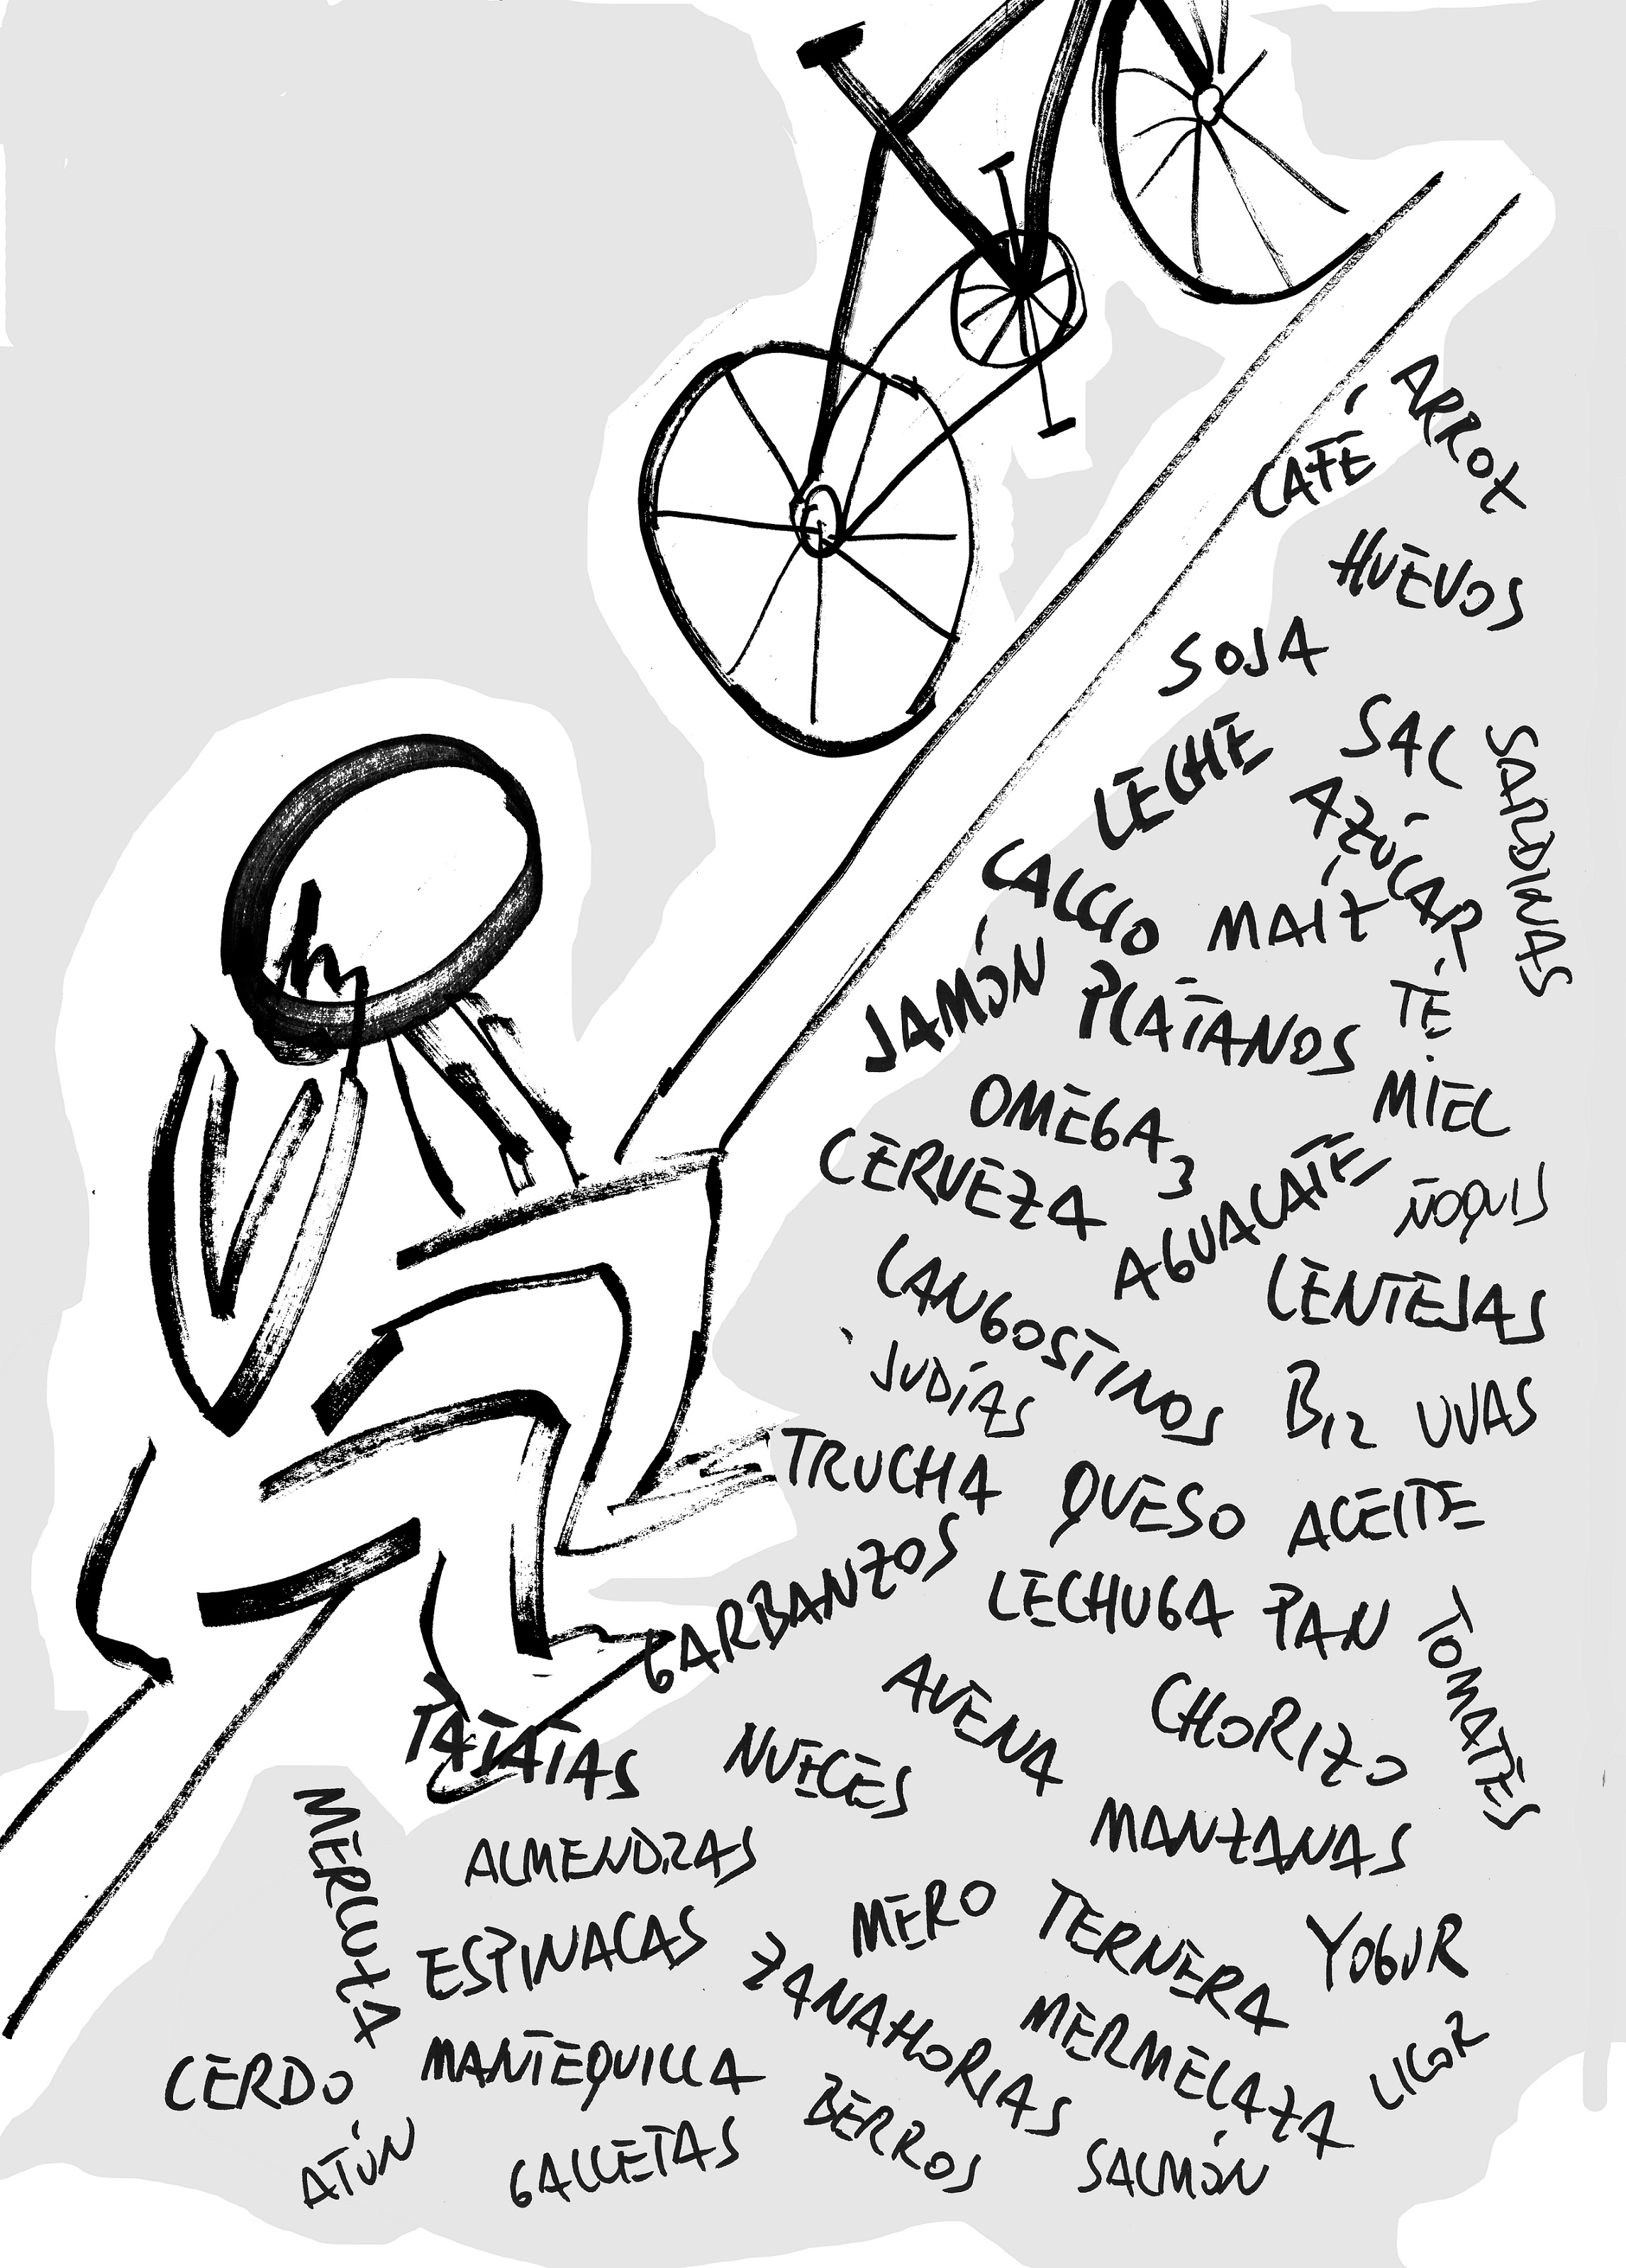 ARROZ
CAFÉ
HUEVOS
SOJA
SAL
SARDINAS
LECHE
AZÚCAR
CALCIO
MAÍZ
JAMÓN
PLATANOS
TÉ
MIEL
OMEGA 3
CERVEZA
AGUACATE
ÑOQUIS
LANGOSTINOS
LENTEJAS
JUDÍAS
B12
UVAS
TRUCHA
QUESO
ACEITE
GARBANZOS
LECHUGA
PAN
TOMATES
AVENA
CHORIZO
PATATAS
NUECES
MERLUZA
ALMENDRAS
MANZANAS
MERO
TERNERA
YOGUR
ESPINACAS
ZANAHORIAS
MERMELAZA
LICOR
CERDO
MANTEQUILLA
BERROS
ATÚN
GALLETAS
SALMÓN